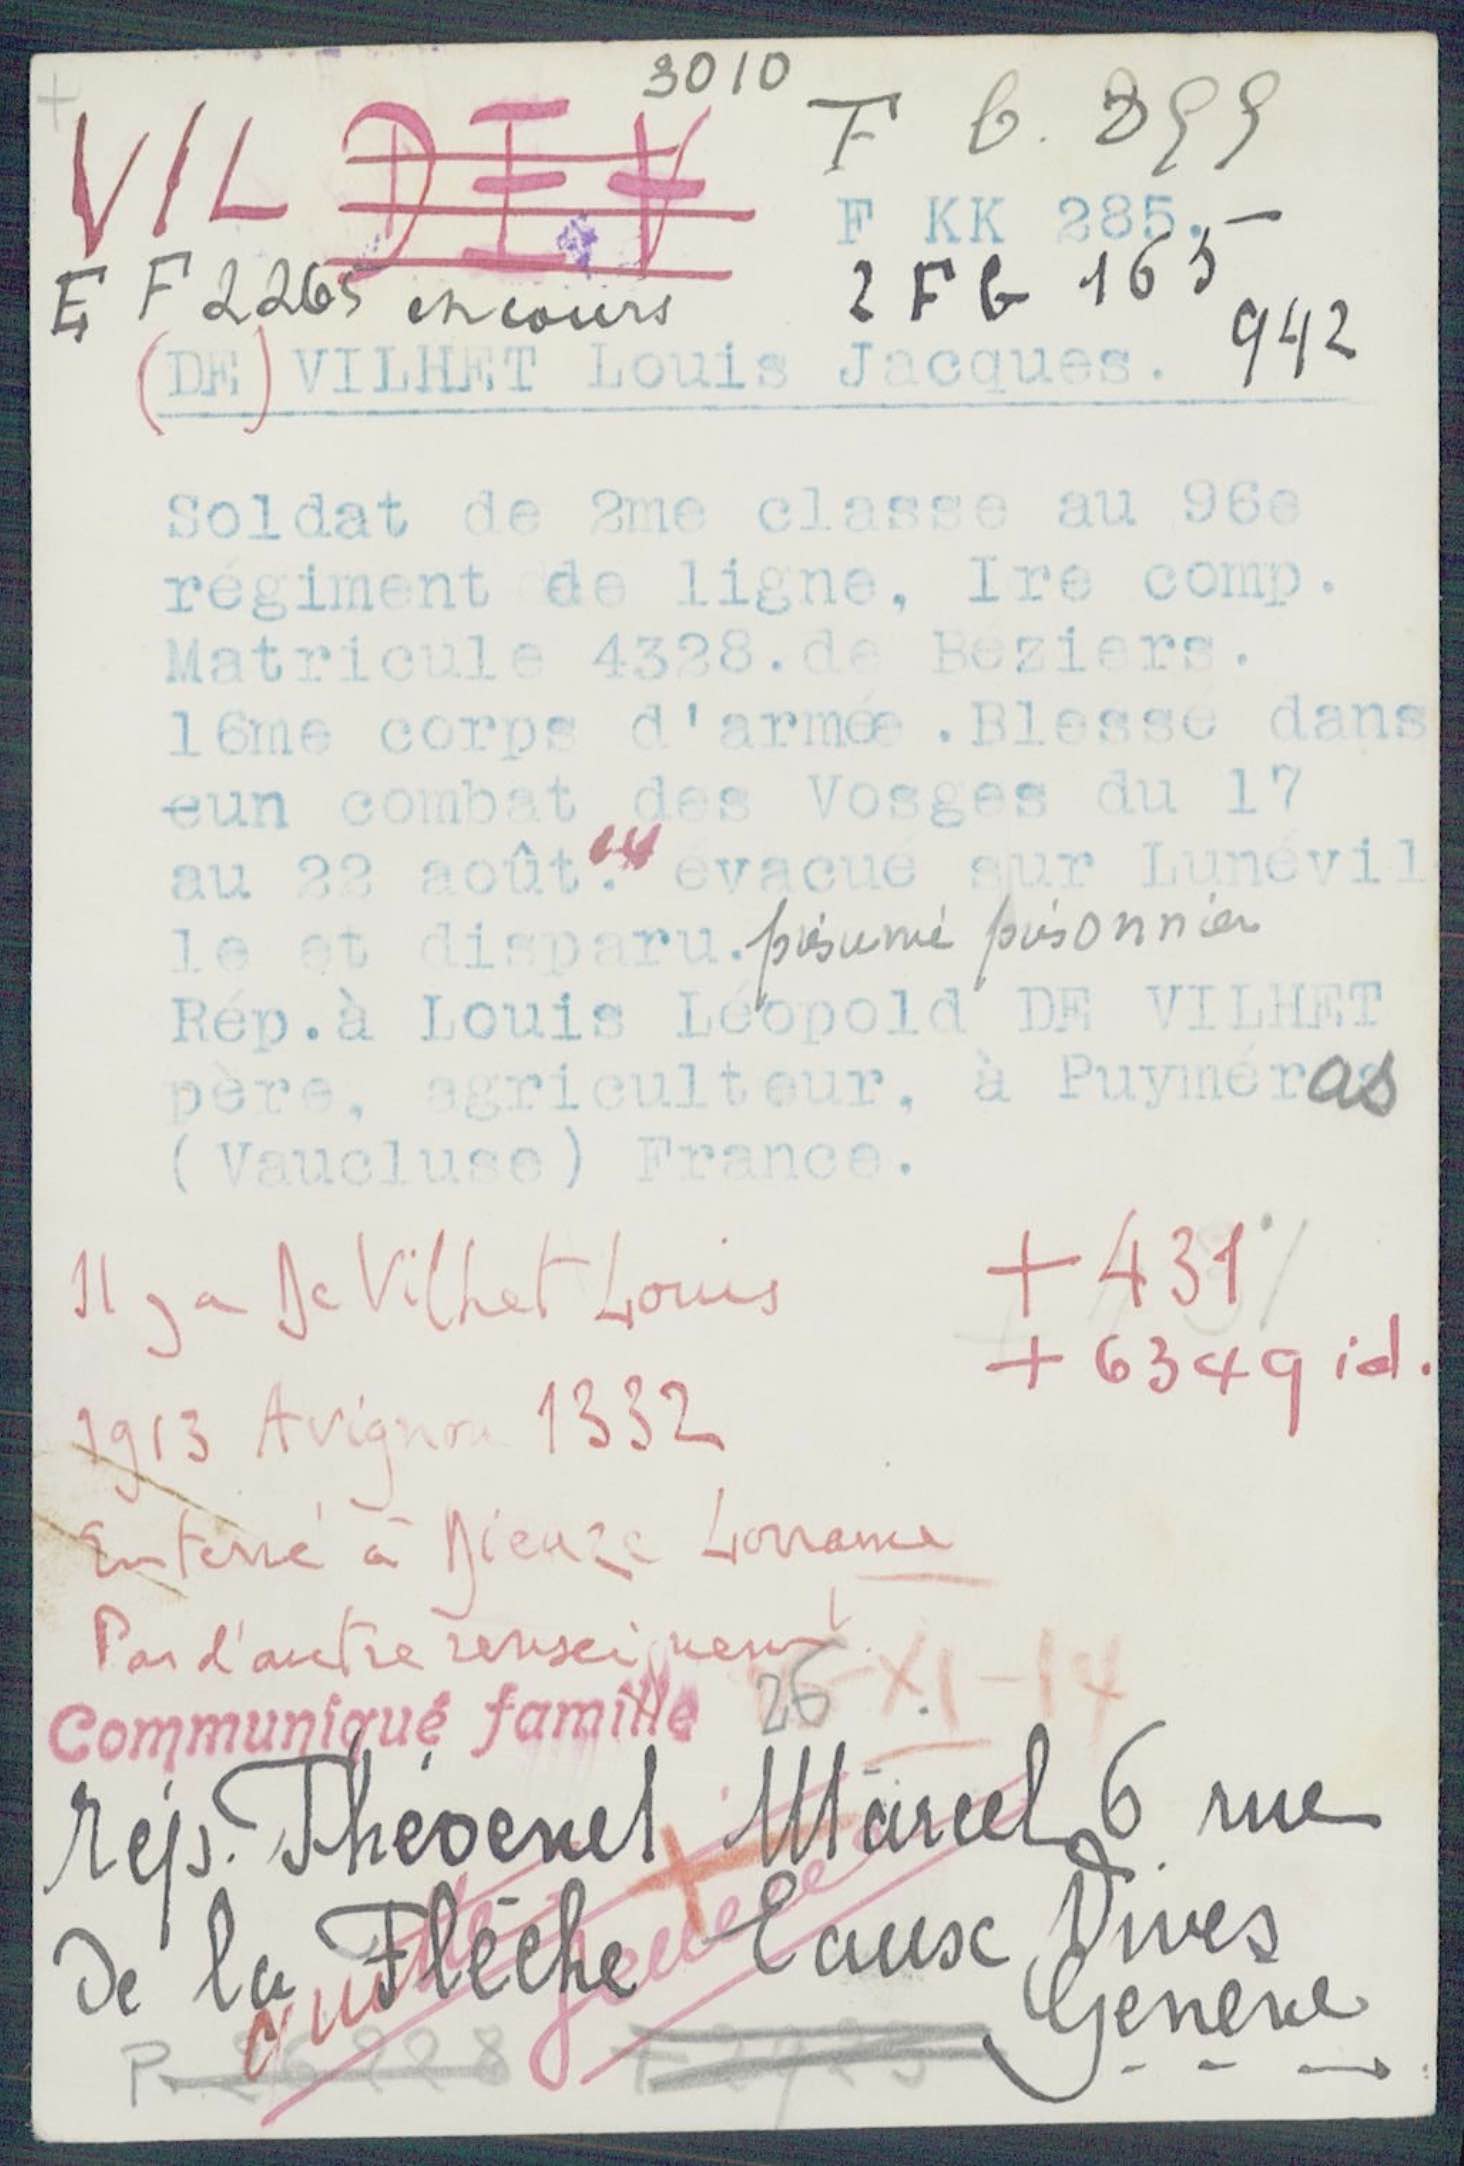 3010
VIL DEV
F G. 899
F KK 285.
E F 2265 en cours
2 FG 165
942
(DE) VILHET Louis Jacques.
Soldat de 2me classe au 96e
régiment de ligne, Ire comp.
Matricule 4328.de Béziers.
16me corps d'armée.Blessé dans
eun combat des Vosges du 17
au 22 août. évacué sur Lunévil
le et disparu. présumé prisonnier
Rép.à Louis Léopold DE VILHET
père, agriculteur, à Puyméras
(Vaucluse) France.
Il y a De Vilhet Louis
+ 431
+ 6349 id.
1913 Avignon 1332
Enterré à Dieuze Lorraine
Pas d'autre renseignement
Communiqué famille 26-XI-14
rép. Thévenel Marcel 6 rue
De la Flèche Eaux Vives
Genève
P. 26228 F 2923